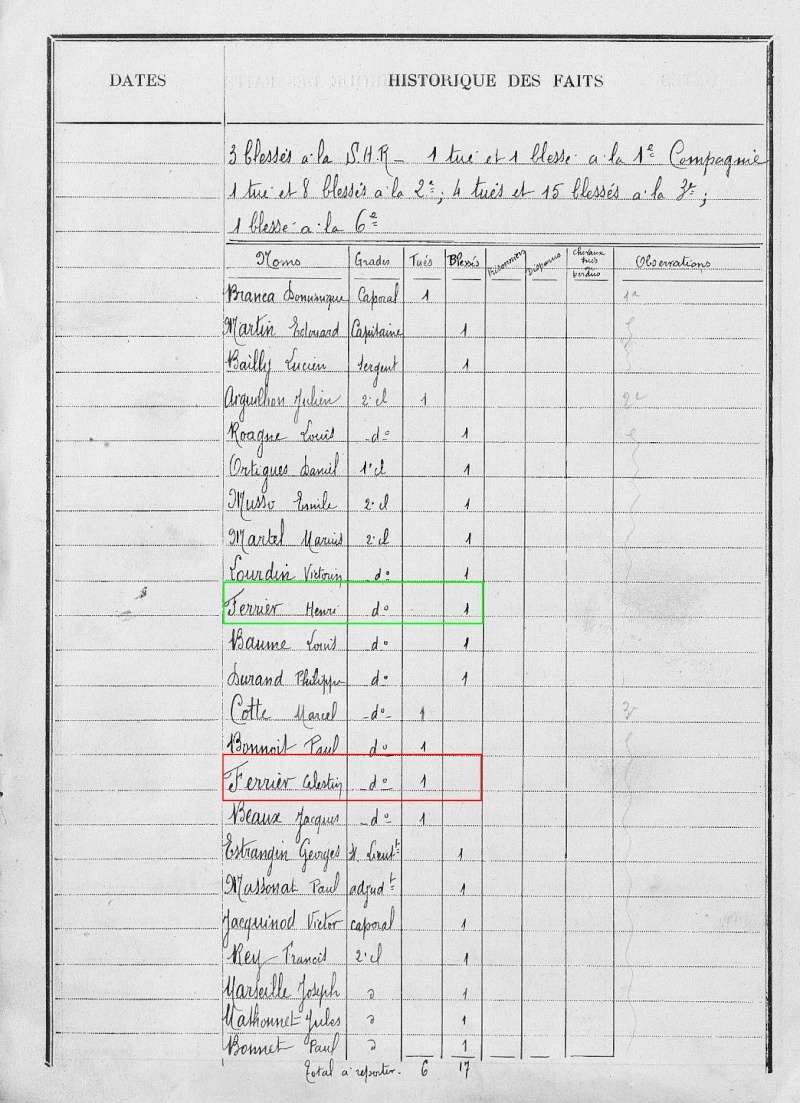 DATES HISTORIQUE DES FAITS
3 blessés a la S.H.R_ 1 tué et 1 blessé a la 1e Compagnie
1 tué et 8 blessés a la 2e; 4 tués et 15 blessés a la 3e;
1 blessé a la 6e
Noms Grades Tués Blessés Prisonniers Disparus chevaux tués ou perdus Observations
Branca Dominique Caporal 1 1e
Martin Edouard Capitaine 1
Bailly Lucien sergent 1
Arguilhon Julien 2e cl 1 2e
Roagne Louis _do 1
Ortigues Daniel 1e cl 1
Musso Emile 2e cl 1
Martel Marius 2e cl 1
Lourdin Victorin _do 1
Ferrier Henri do 1
Baume Louis do 1
Durand Philippe do 1
Cotte Marcel _do_ 1 3e
Bonnoit Paul do 1
Ferrier Celestin _do 1
Beaux Jacques _do 1
Estrangin Georges s. Lieutt 1
Massonat Paul adjudt 1
Jacquinod Victor caporal 1
Rey Francis 2e cl 1
Marseille Joseph d 1
Mathonnet Jules d 1
Bonnet Paul d 1
Total a reporter. 6 17